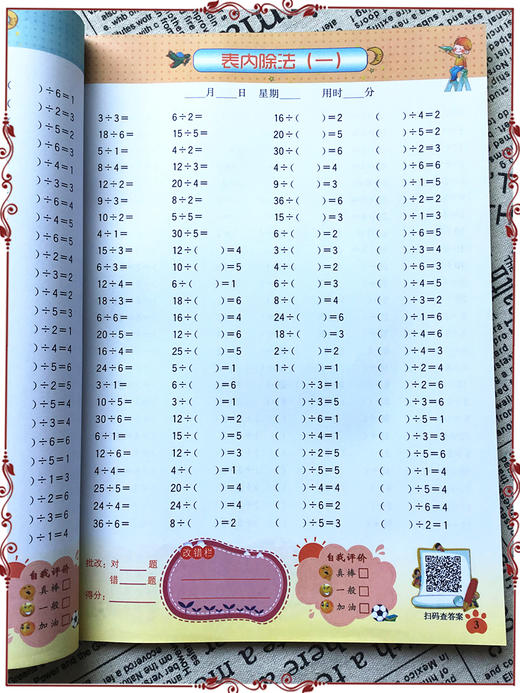 表内除法（一）
____月____日 星期____ 用时____分
)÷6=1
)÷2=3
)÷5=2
)÷6=3
)÷4=1
)÷3=3
)÷6=4
)÷4=5
)÷6=5
)÷2=4
)÷3=2
)÷4=2
)÷5=3
)÷2=1
)÷4=4
)÷5=6
)÷2=5
)÷5=4
)÷3=4
)÷6=6
)÷5=1
)÷1=3
)÷2=6
)÷3=6
)÷1=4
自我评价
真棒
一般
加油
3÷3= 6÷2= 16÷( )=2 ( )÷4=2
18÷6= 15÷5= 20÷( )=5 ( )÷5=2
5÷1= 4÷2= 30÷( )=6 ( )÷1=2
8÷4= 12÷3= 4÷( )=4 ( )÷6=6
12÷2= 20÷4= 9÷( )=3 ( )÷1=5
9÷3= 8÷2= 36÷( )=6 ( )÷2=2
10÷2= 5÷5= 15÷( )=3 ( )÷1=3
4÷1= 30÷5= 6÷( )=2 ( )÷5=3
15÷3= 12÷( )=4 3÷( )=3 ( )÷3=4
6÷3= 10÷( )=5 4÷( )=2 ( )÷6=3
12÷4= 6÷( )=1 6÷( )=3 ( )÷4=5
18÷3= 18÷( )=6 8÷( )=4 ( )÷3=2
6÷6= 16÷( )=4 24÷( )=6
20÷5= 18÷( )=3
16÷4= 25÷( )=5 2÷( )=2
24÷6= 5÷( )=1 1÷( )=1
3÷1= 6÷( )=6 ( )÷3=1 ( )÷2=6
10÷5= ( )÷5=4
30÷6= 12÷( )=2 ( )÷6=1 ( )÷5=1
6÷1= 15÷( )=5 ( )÷4=1 ( )÷3=3
12÷6= 12÷( )=3
4÷4= 4÷( )=1 ( )÷5=5 ( )÷1=4
25÷5= 20÷( )=4
24÷4= 24÷( )=4
36÷6= 8÷( )=2 ( )÷2=1
批改：对____题
错____题
得分：____
改错栏
自我评价
真棒
一般
加油
扫码查答案
3